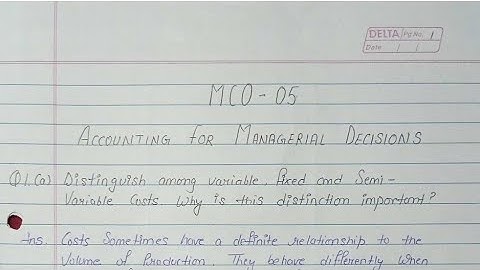 DELTA Pg No. 1
Date / /
MCO-05
ACCOUNTING FOR MANAGERIAL DECISIONS
Q1.(a) Distinguish among variable, fixed and Semi-
Variable Costs Why is this distinction important?
Ans. Costs Sometimes have a definite relationship to the
Volume of Production. They behave differently when